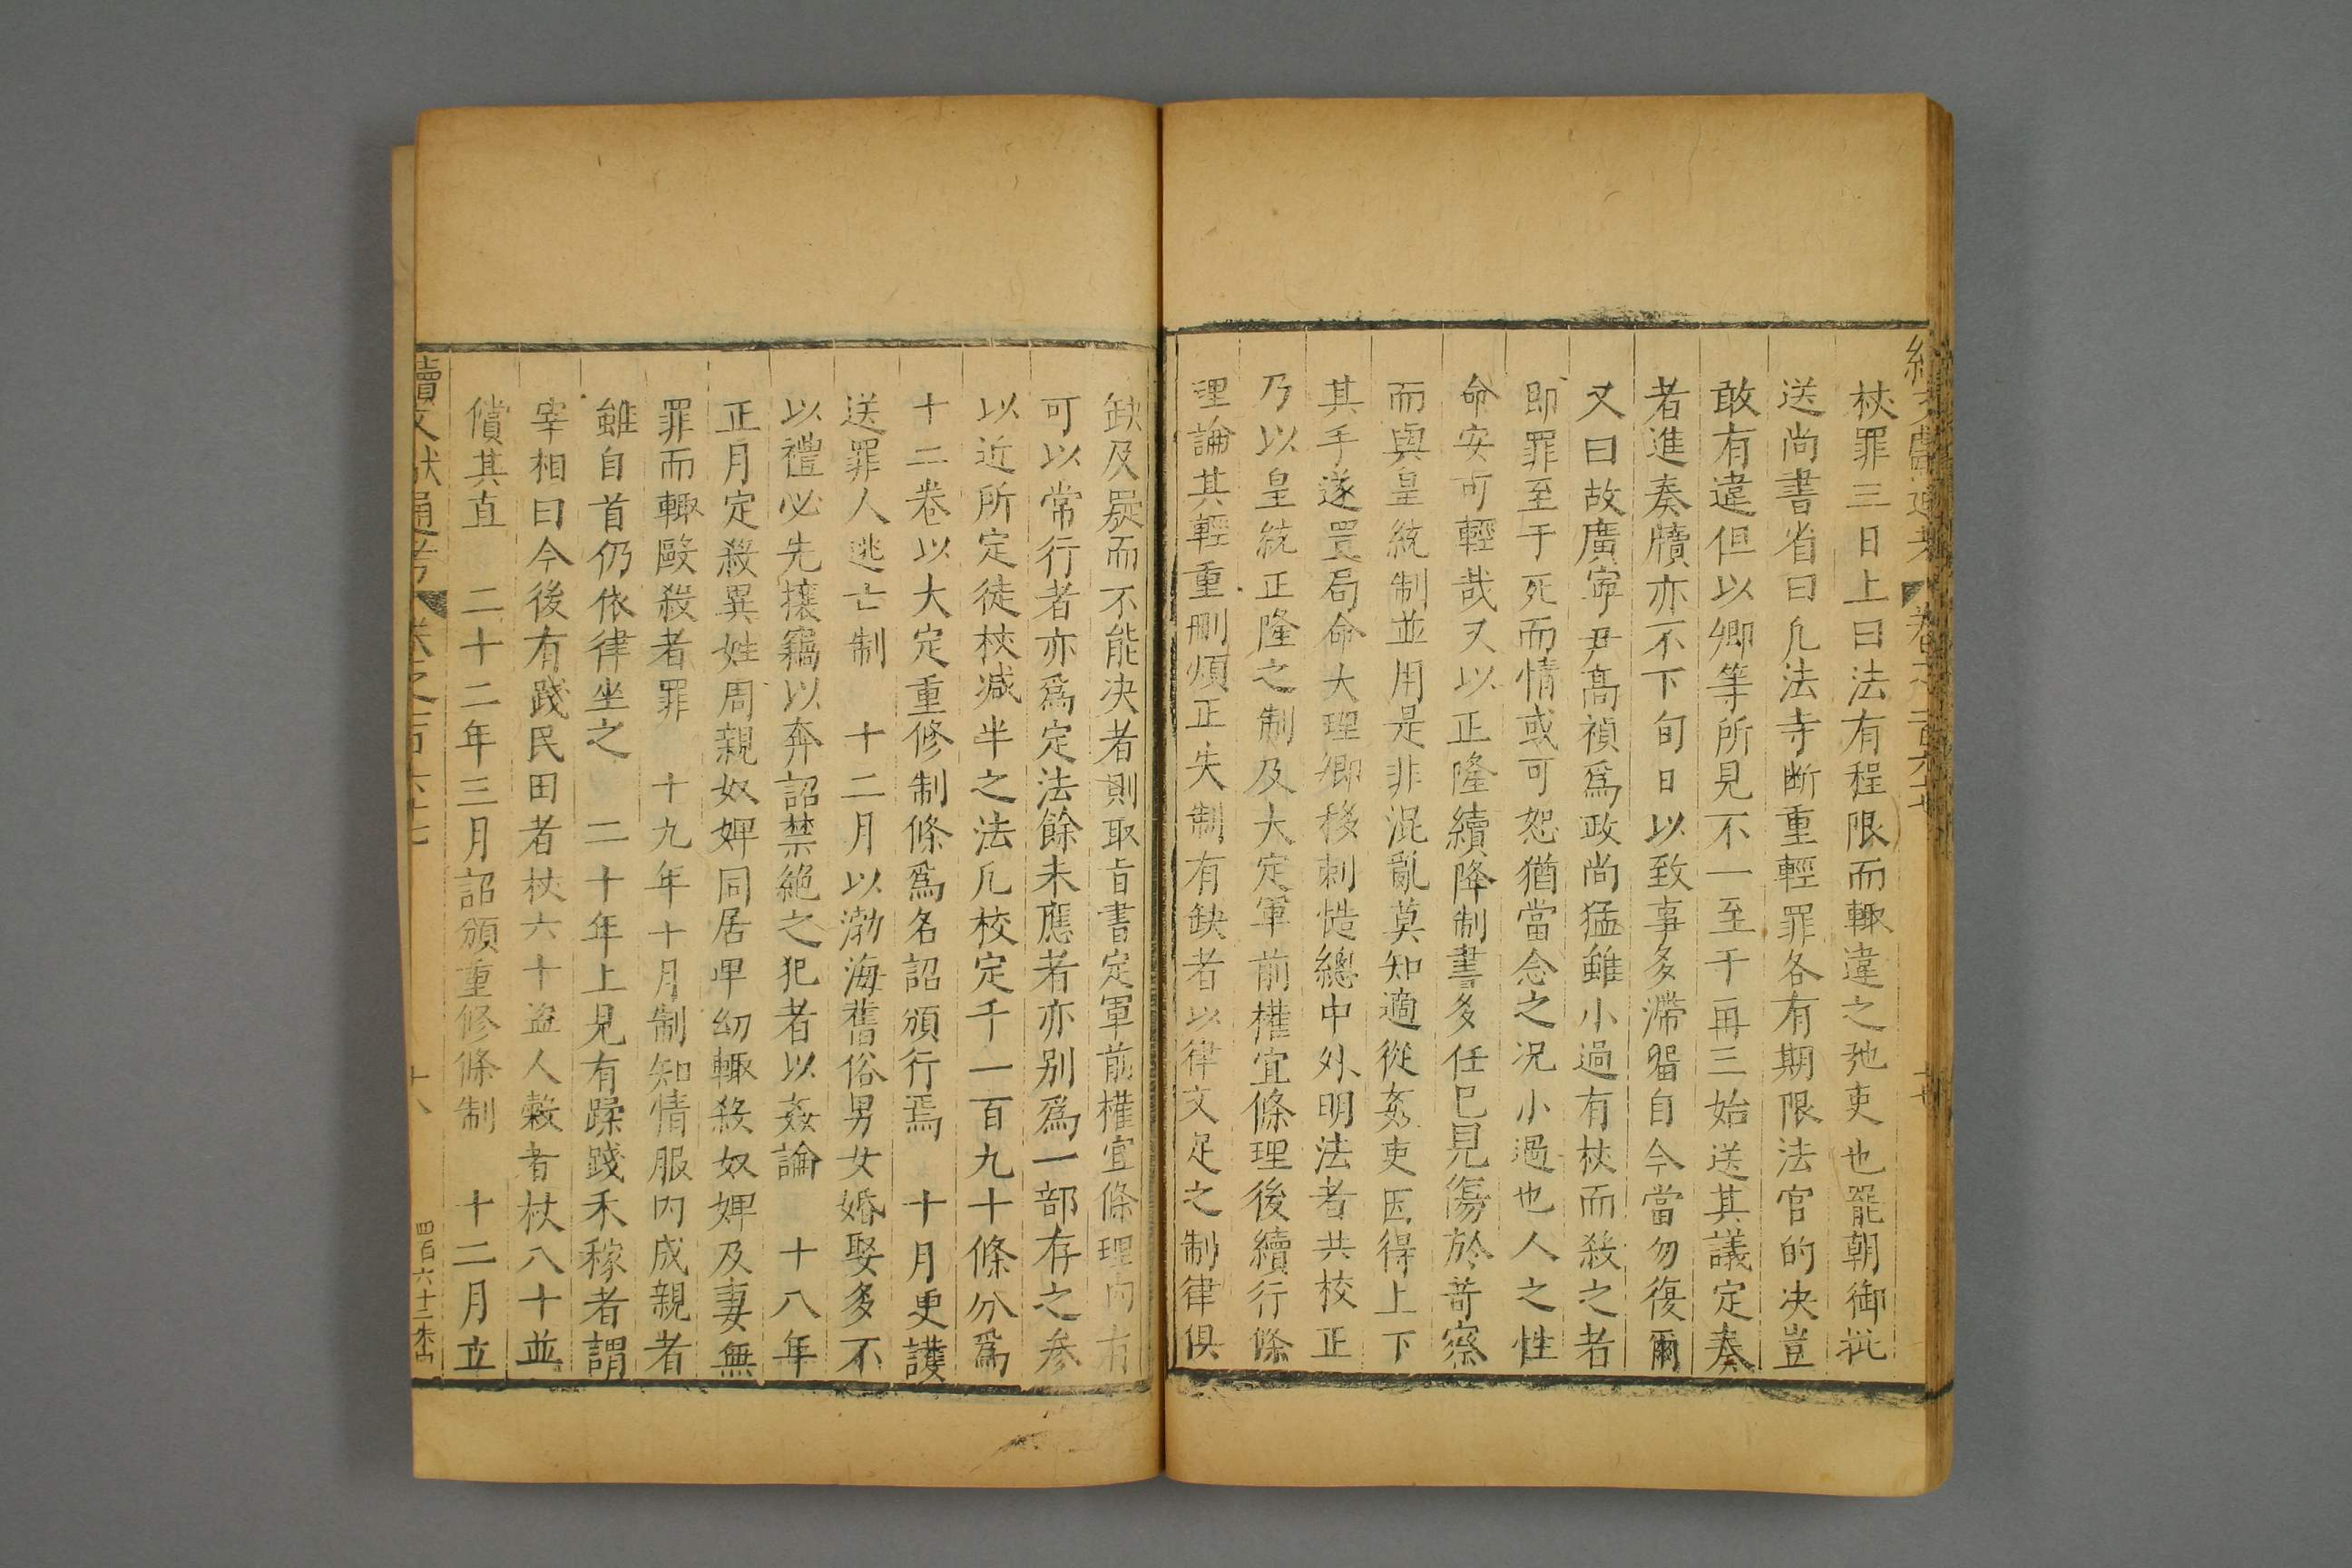 杖罪三日上曰法有程限而輙違之弛吏也罷朝御批
送尚書省曰凢法寺断重輕罪各有期限法官的决豈
敢有違但以卿等所見不一至于再三始送其議定奏
者進奏牘亦不下旬日以致事多滯畱自今當勿復爾
又曰故廣寧尹髙禎爲政尚猛雖小過有杖而殺之者
即罪至于死而情或可恕猶當念之况小過也人之性
命安可輕哉又以正隆續降制書多任巳見傷於苛察
而與皇統制並用是非混亂莫知適從姦吏因得上下
其手遂置局命大理卿移剌慥總中外明法者共校正
乃以皇統正隆之制及大定軍前權宜條理後續行條
理論其輕重刪煩正失制有缺者以律文足之制律俱
缺及疑而不能决者則取旨書定軍前權宜條理内有
可以常行者亦爲定法餘未應者亦别爲一部存之参
以近所定徒杖减半之法凢校定千一百九十條分爲
十二卷以大定重修制條爲名詔頒行焉　十月更護
送罪人逃亡制　十二月以渤海舊俗男女婚娶多不
以禮必先攘竊以奔詔禁絶之犯者以姦論　十八年
正月定殺異姓周親奴婢同居卑幼輙殺奴婢及妻無
罪而輙毆殺者罪　十九年十月制知情服内成親者
雖自首仍依律坐之　二十年上見有蹂踐禾稼者謂
宰相曰今後有踐民田者杖六十盗人穀者杖八十並
償其直　二十二年三月詔頒重修條制　十二月立
續文獻通考　卷之一百六十七　十八　四百六十二